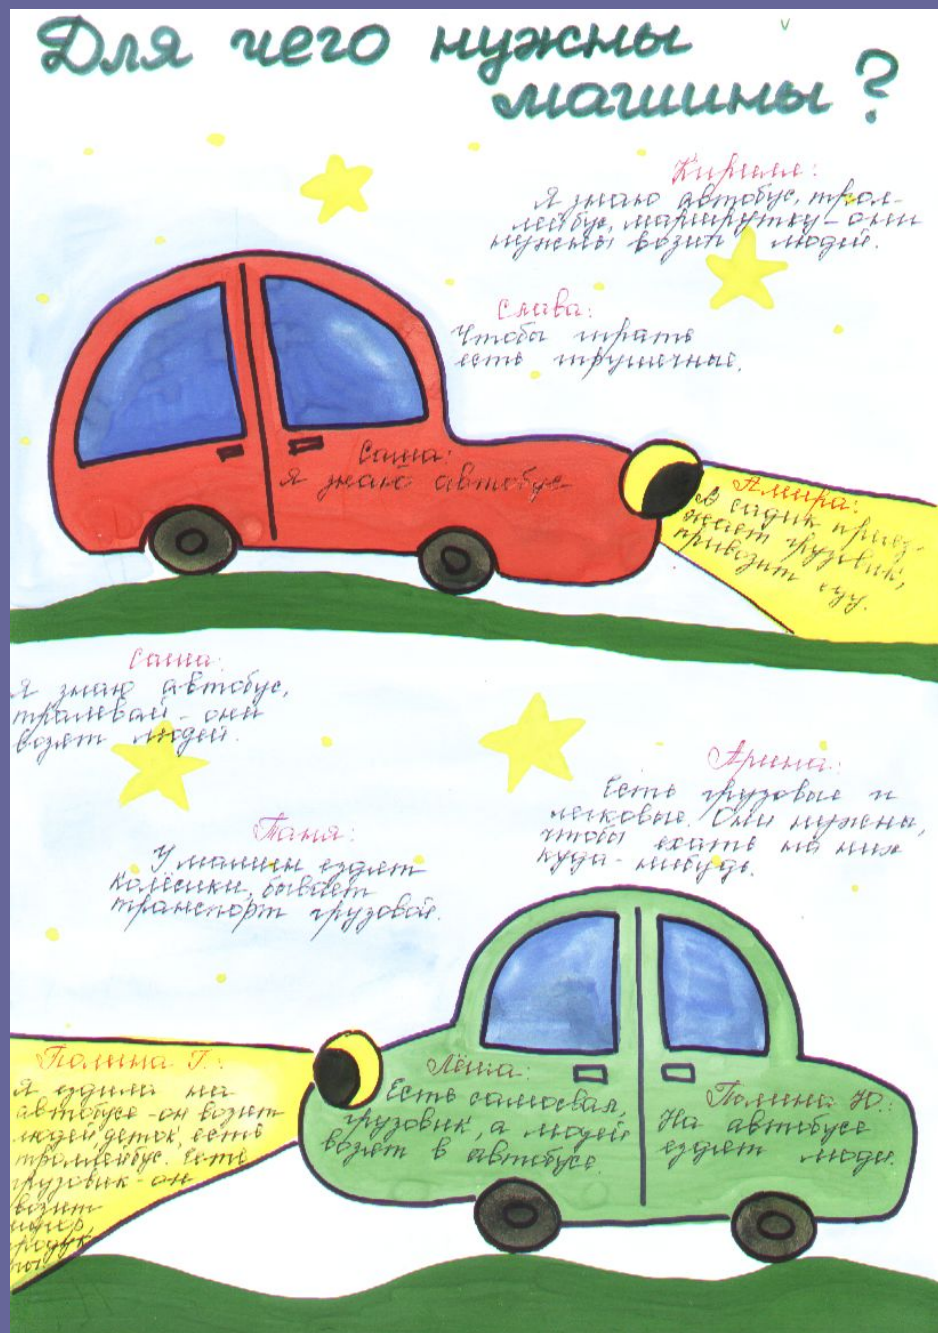 Для чего нужны
машины?
Кирилл:
Я знаю автобус, трол-
лейбус, маршрутку - они
нужны возит людей.
Слава:
Чтобы играть
есть игрушечные.
Саша:
Я знаю автобус
Амира:
В садик приез-
жает грузовик,
привозит еду.
Саша:
Я знаю автобус,
тралевай - они
возят людей.
Арина:
Есть грузовые и
легковые. Они нужны,
чтобы ехать на них
куда-нибудь.
Таня:
У машин ездят
колёсики, бывает
транспорт грузовой.
Полина Г.:
Я ездила на
автобусе - он возит
людей, деток, есть
троллейбус. Есть
грузовик - он
возит
продук
ты.
Лёша:
Есть самосвал,
грузовик, а людей
возят в автобусе.
Полина Ю.:
На автобусе
ездят люди.